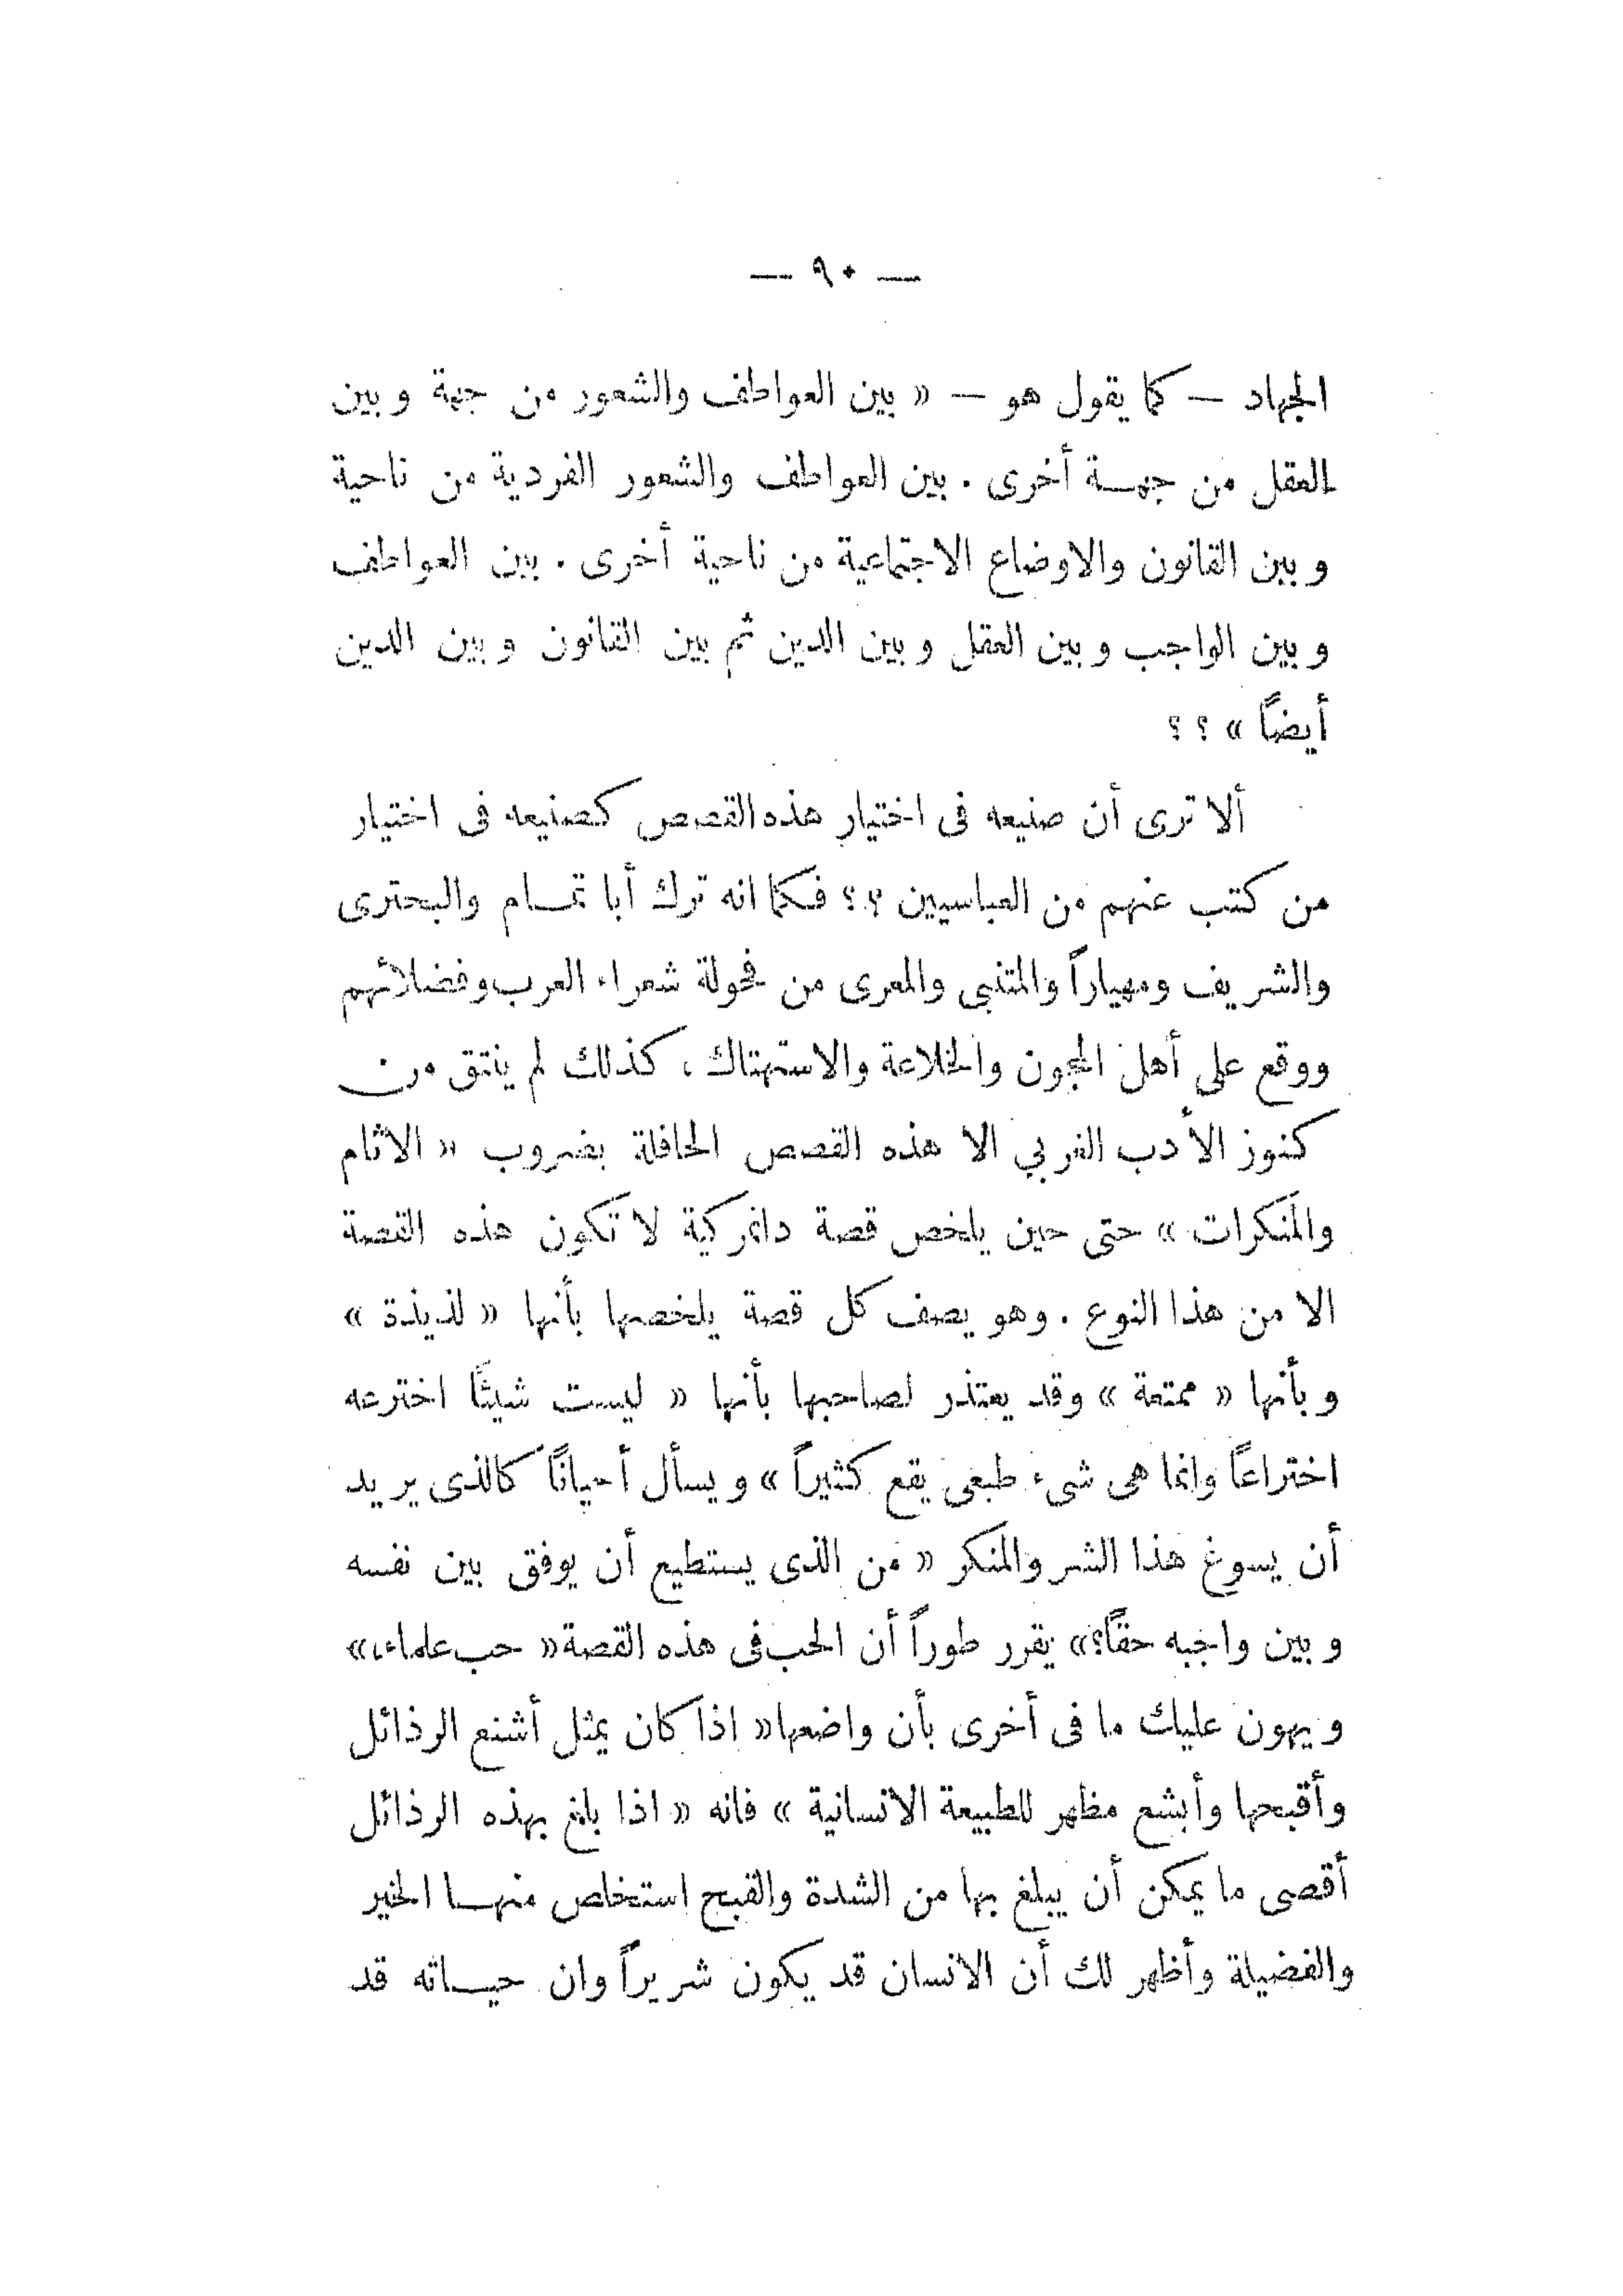 — ٩٠ —
الجهاد — كما يقول هو — « بين العواطف والشعور من جهة وبين
العقل من جهة أخرى . بين العواطف والشعور الفردية من ناحية
وبين القانون والاوضاع الاجتماعية من ناحية أخرى . بين العواطف
وبين الواجب وبين العقل وبين الدين ثم بين القانون وبين الدين
أيضاً » ؟ ؟
ألا ترى أن صنيعه فى اختيار هذه القصص كصنيعه فى اختيار
من كتب عنهم من العباسيين ؟ ؟ فكما انه ترك أبا تمام والبحترى
والشريف ومهياراً والمتنبى والمعرى من فحولة شعراء العرب وفضلائهم
ووقع على أهل المجون والخلاعة والاستهتاك ، كذلك لم ينتق من
كنوز الأدب الغربي الا هذه القصص الحافلة بضروب « الاثام
والمنكرات » حتى حين يلخص قصة دانمركية لا تكون هذه القصة
الا من هذا النوع . وهو يصف كل قصة يلخصها بأنها « لذيذة »
وبأنها « ممتعة » وقد يعتذر لصاحبها بأنها « ليست شيئًا اخترعه
اختراعًا وانما هى شىء طبعى يقع كثيراً » ويسأل أحيانًا كالذى يريد
أن يسوغ هذا الشر والمنكر « من الذى يستطيع أن يوفق بين نفسه
وبين واجبه حقًا؟ » يقرر طوراً أن الحب فى هذه القصة « حب علماء »
ويهون عليك ما فى أخرى بأن واضعها « اذا كان يمثل أشنع الرذائل
وأقبحها وأبشع مظهر للطبيعة الانسانية » فانه « اذا بلغ بهذه الرذائل
أقصى ما يمكن أن يبلغ بها من الشدة والقبح استخلص منها الخير
والفضيلة وأظهر لك أن الانسان قد يكون شريراً وان حياته قد